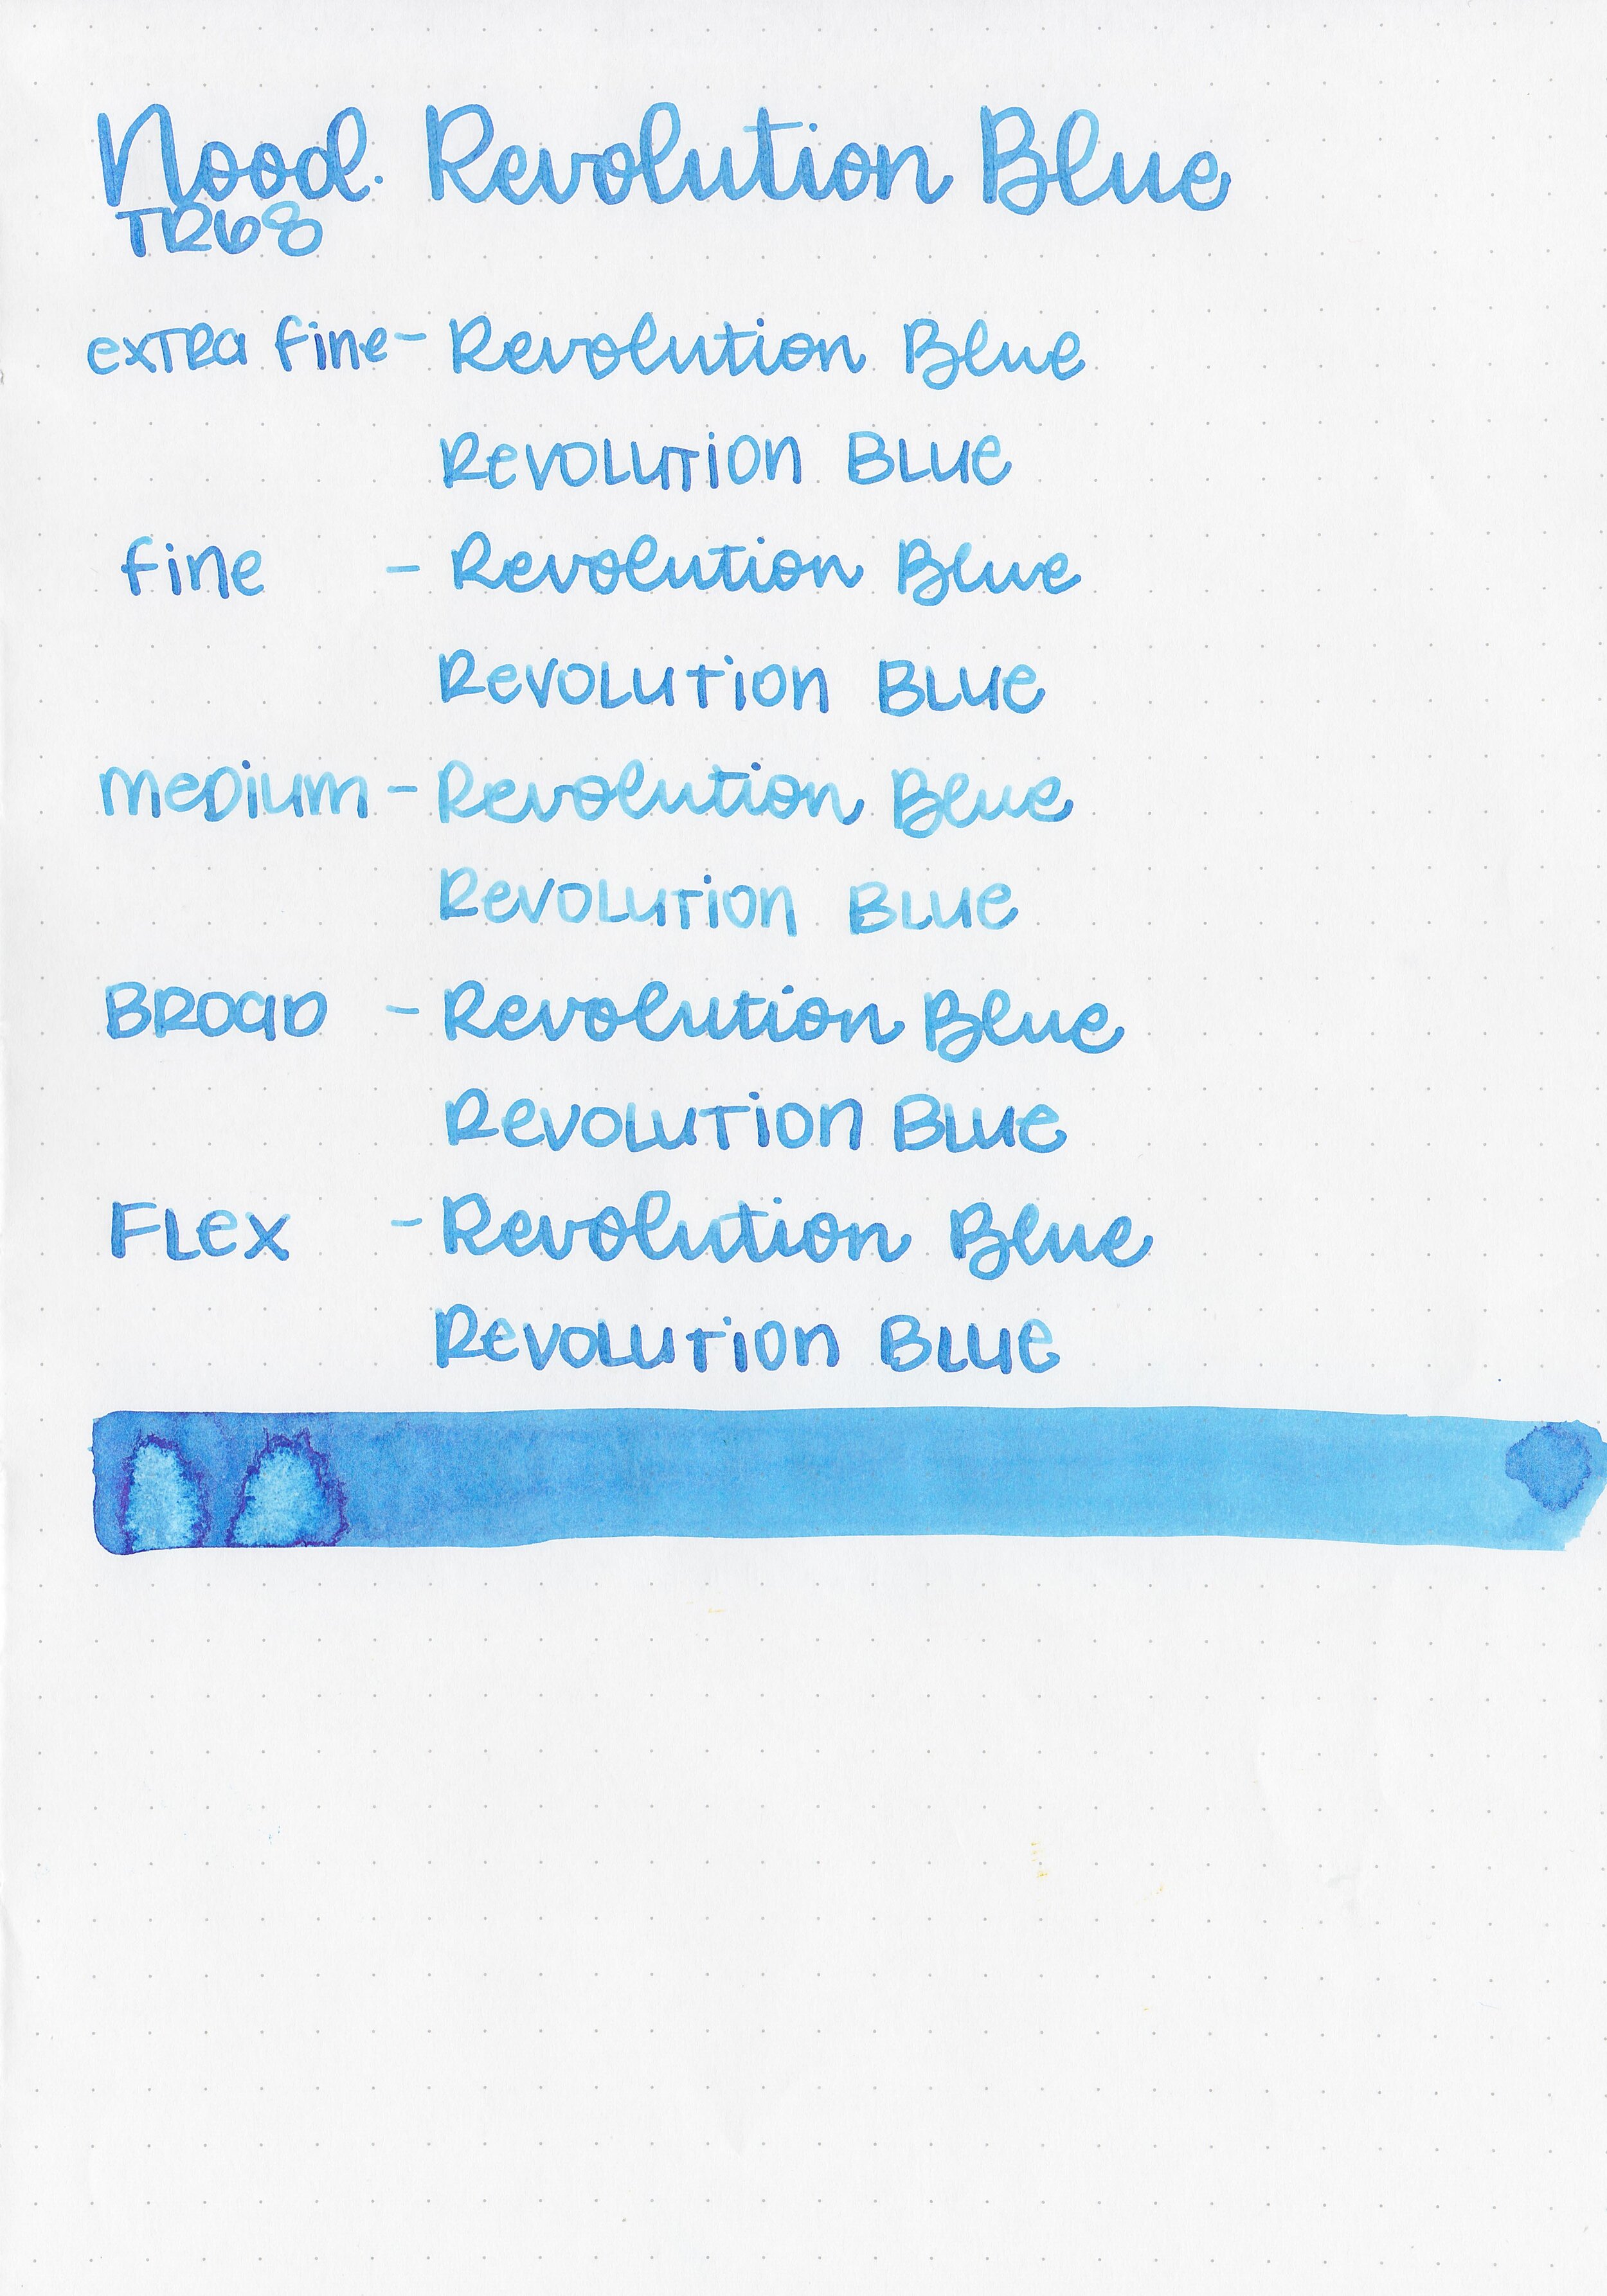 Nood. Revolution Blue
TR68
extra fine - Revolution Blue
Revolution Blue
fine - Revolution Blue
Revolution Blue
medium - Revolution Blue
Revolution Blue
Broad - Revolution Blue
Revolution Blue
Flex - Revolution Blue
Revolution Blue